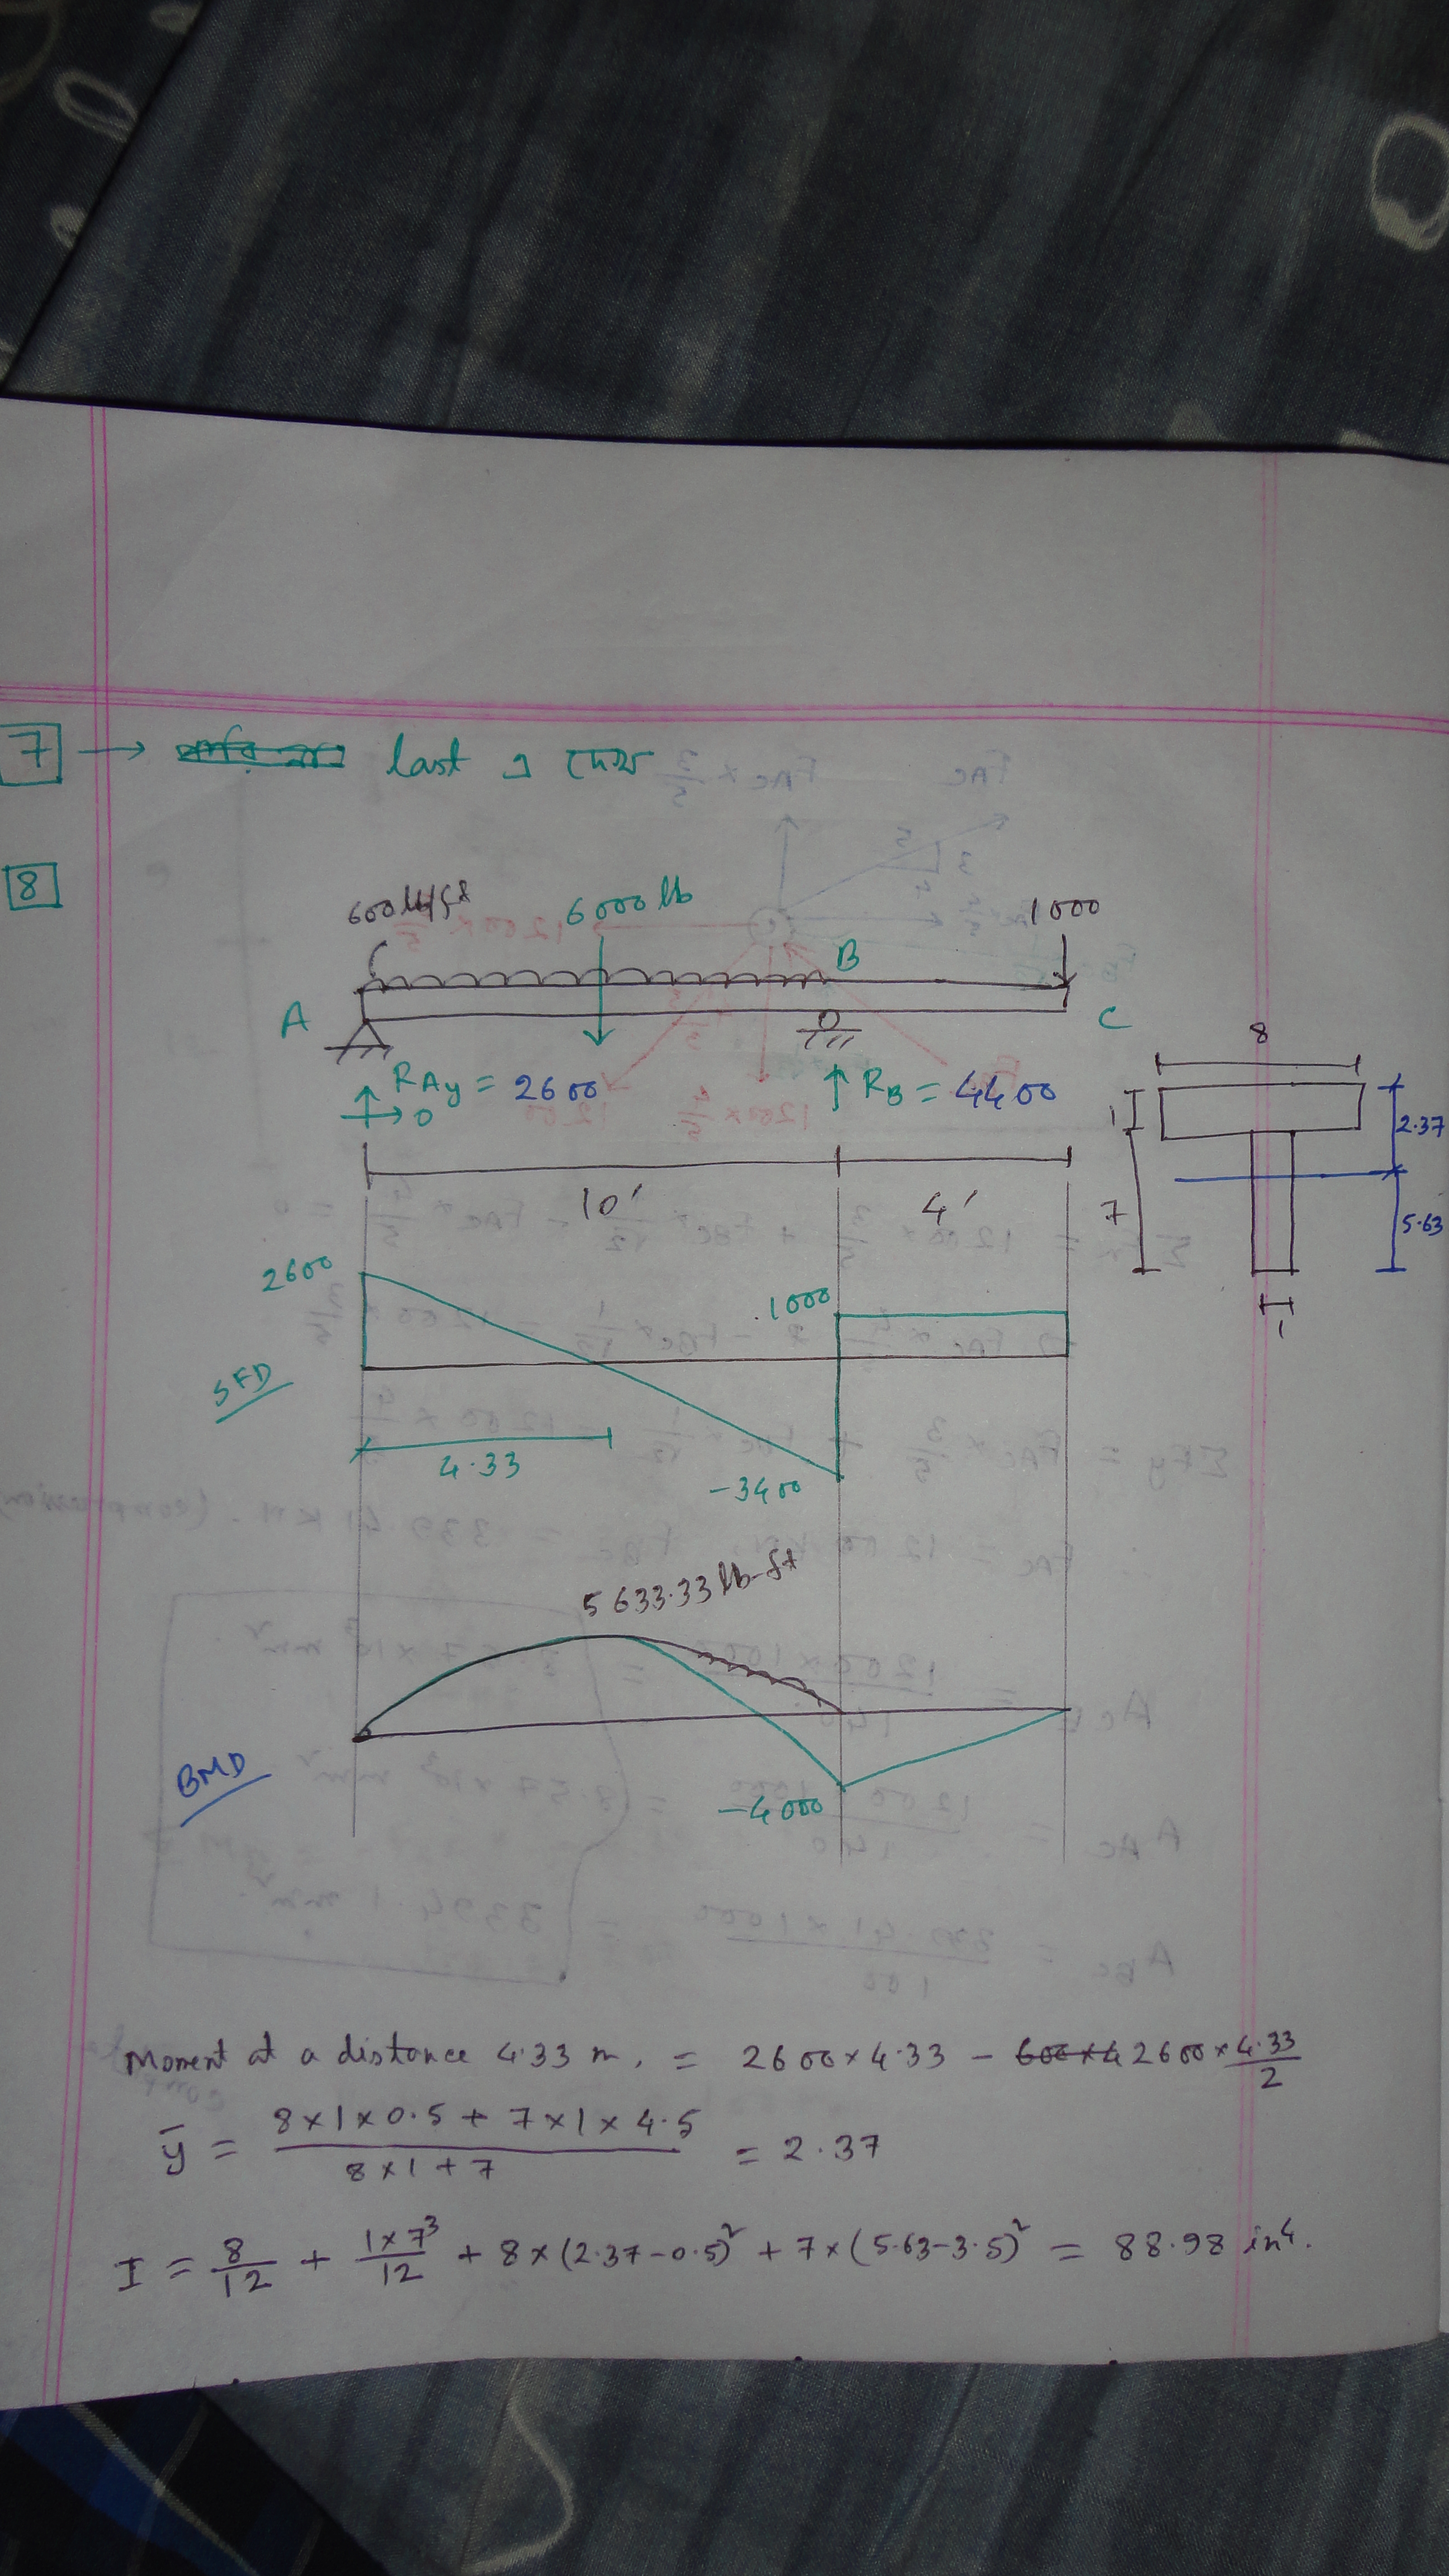 7 → last এ দেখ
8
600 lb/ft 6000 lb 1000
A B C
R_Ay = 2600 R_B = 4400
0
8
1
2.37
7
5.63
1
10' 4'
2600
1000
SFD
4.33
-3400
5633.33 lb-ft
BMD
-4000
Moment at a distance 4.33 m. = 2600 × 4.33 - 2600 × 4.33/2
ȳ = (8×1×0.5 + 7×1×4.5)/(8×1+7) = 2.37
I = 8/12 + 1×7³/12 + 8×(2.37-0.5)² + 7×(5.63-3.5)² = 88.98 in⁴.